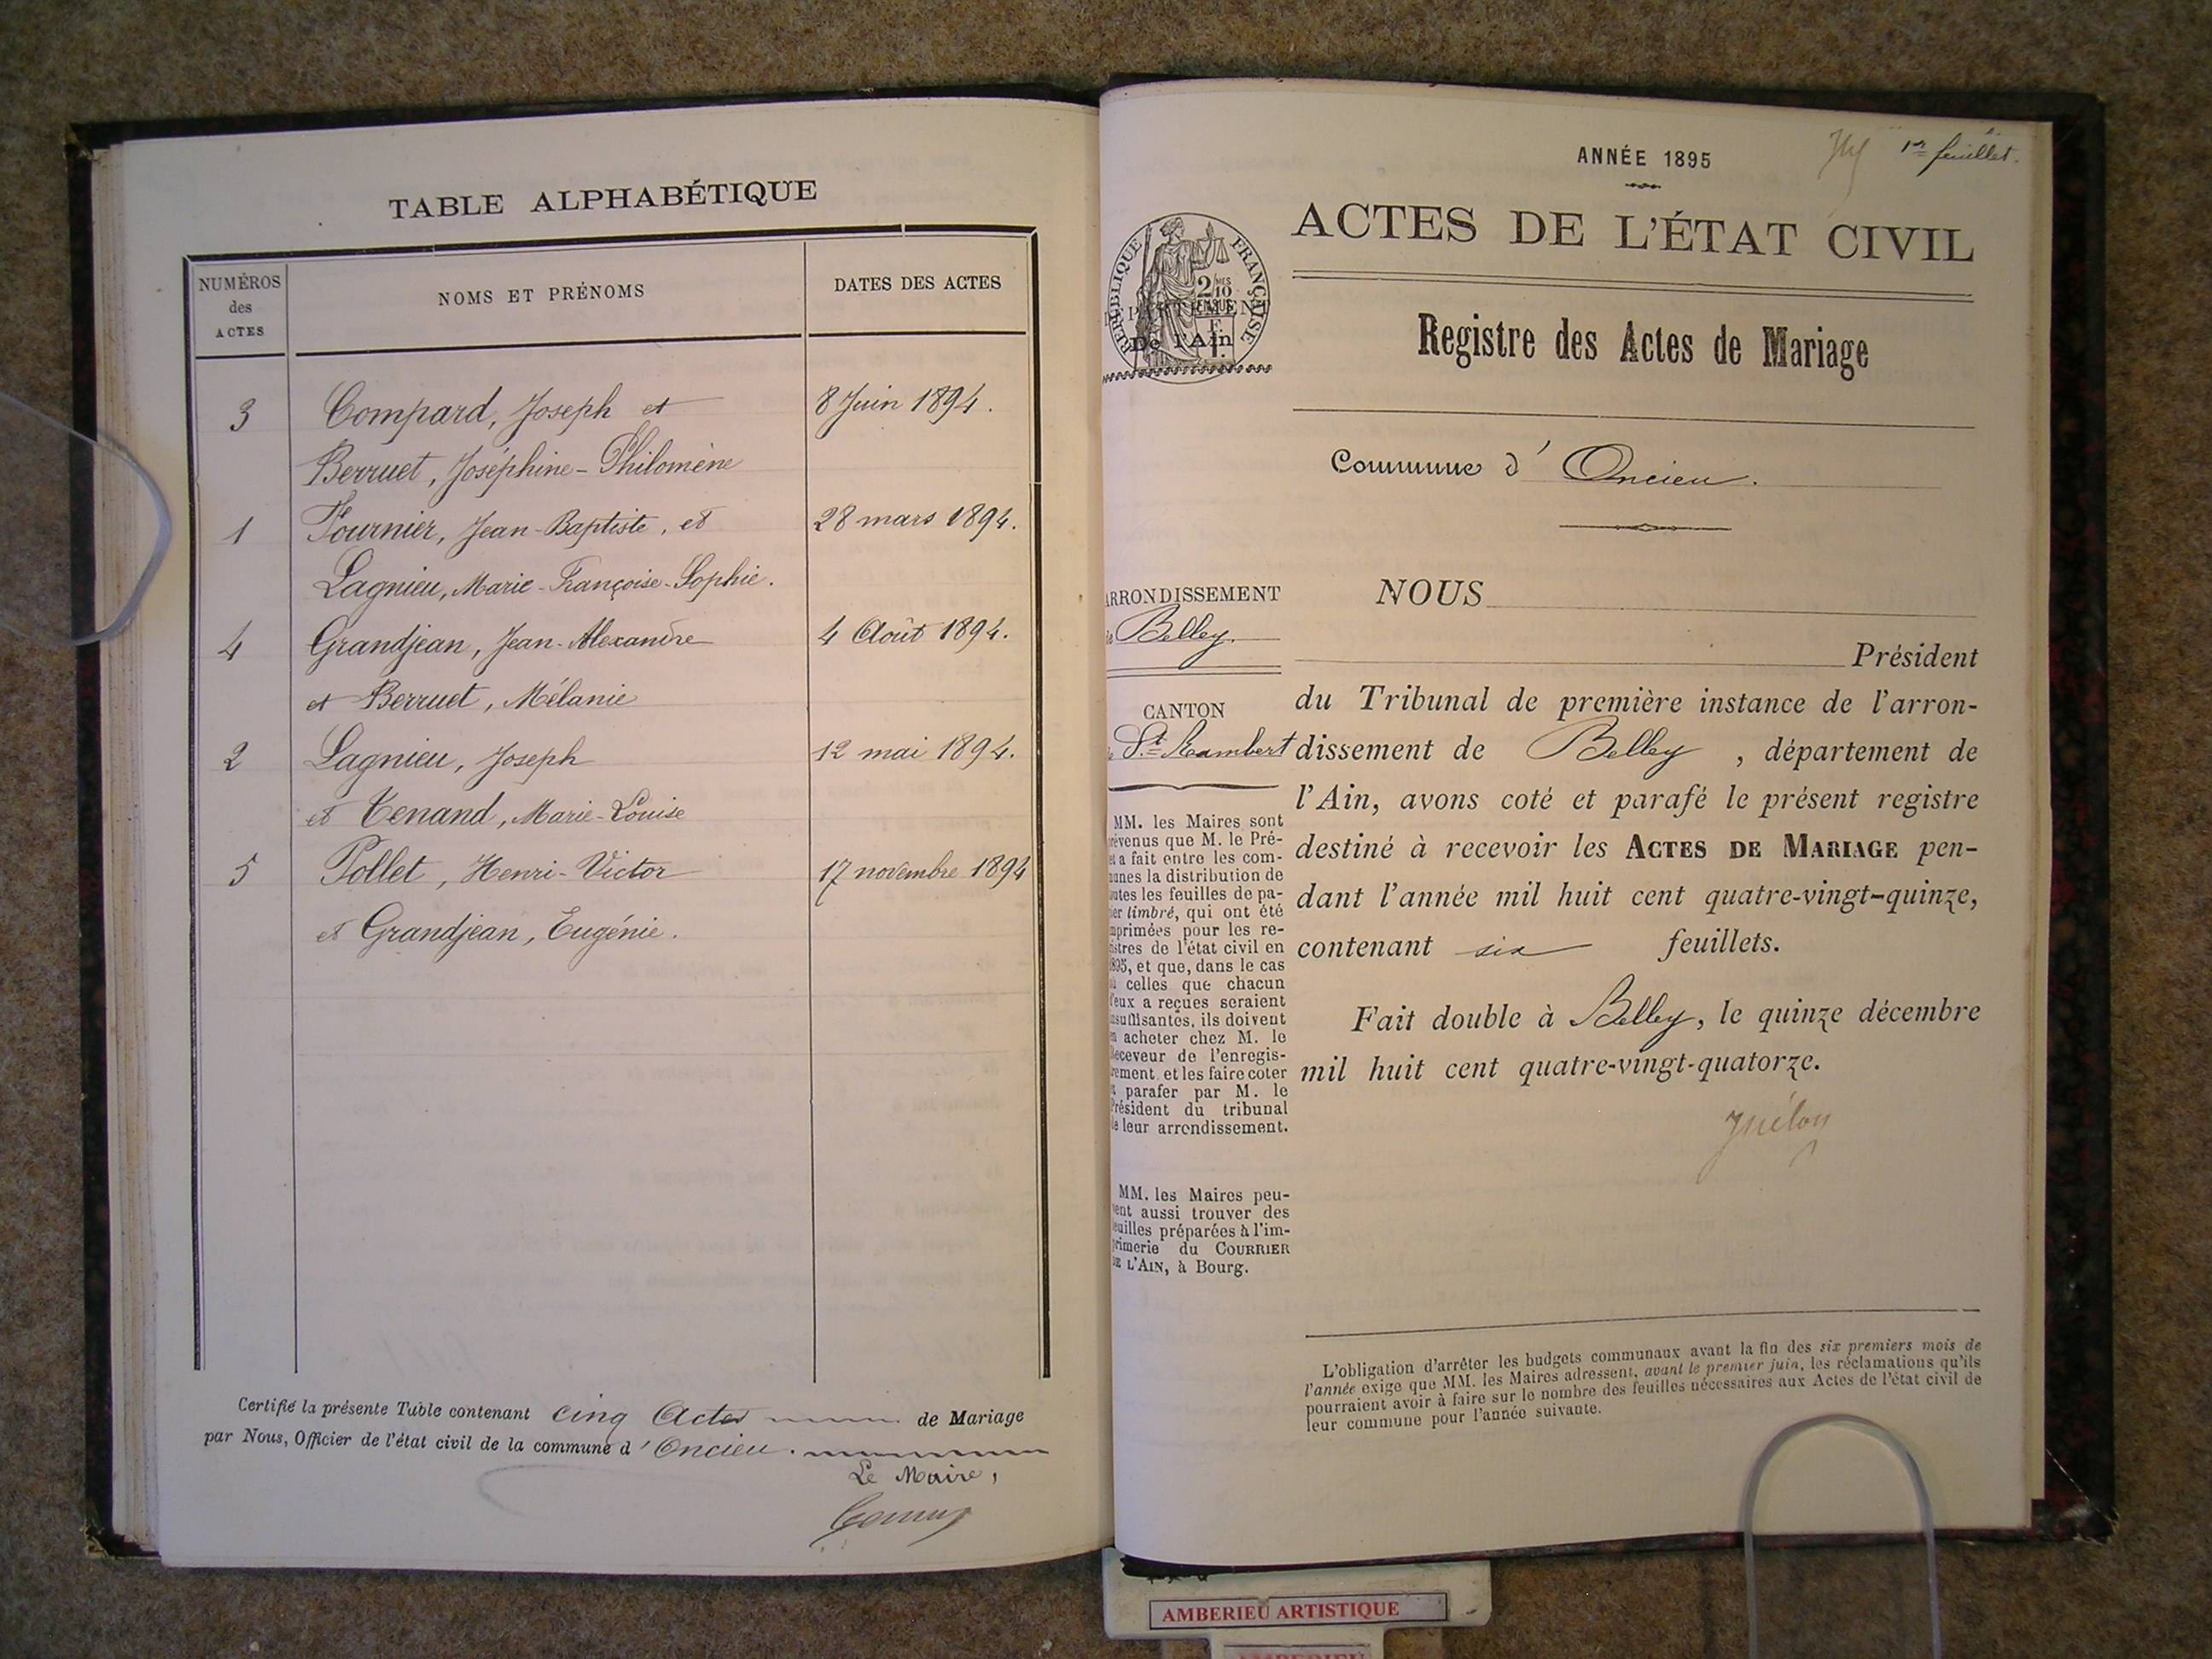 TABLE ALPHABÉTIQUE
NUMÉROS
des
ACTES
NOMS ET PRÉNOMS
DATES DES ACTES
3 Compard, Joseph et 8 Juin 1894.
Berruet, Joséphine-Philomène
1 Fournier, Jean-Baptiste, et 28 mars 1894.
Lagnieu, Marie-Françoise-Sophie.
4 Grandjean, Jean-Alexandre 4 Août 1894.
et Berruet, Mélanie
2 Lagnieu, Joseph 12 mai 1894.
et Tenand, Marie-Louise
5 Pollet, Henri-Victor 17 novembre 1894
et Grandjean, Eugénie.
Certifié la présente Table contenant cinq Actes de Mariage
par Nous, Officier de l'état civil de la commune d'Oncieu.
Le Maire,
1er feuillet.
ANNÉE 1895
ACTES DE L'ÉTAT CIVIL
RÉPUBLIQUE FRANÇAISE
2/10
DÉPARTEMENT
De l'Ain
Registre des Actes de Mariage
Commune d'Oncieu.
ARRONDISSEMENT
de Belley.
CANTON
de St Rambert
MM. les Maires sont
prévenus que M. le Pré-
fet a fait entre les com-
munes la distribution de
toutes les feuilles de pa-
pier timbré, qui ont été
imprimées pour les re-
gistres de l'état civil en
1895, et que, dans le cas
où celles que chacun
d'eux a reçues seraient
insuffisantes, ils doivent
en acheter chez M. le
Receveur de l'enregis-
trement et les faire coter
et parafer par M. le
Président du tribunal
de leur arrondissement.
MM. les Maires peu-
vent aussi trouver des
feuilles préparées à l'im-
primerie du COURRIER
DE L'AIN, à Bourg.
NOUS
Président
du Tribunal de première instance de l'arron-
dissement de Belley, département de
l'Ain, avons coté et parafé le présent registre
destiné à recevoir les ACTES DE MARIAGE pen-
dant l'année mil huit cent quatre-vingt-quinze,
contenant six feuillets.
Fait double à Belley, le quinze décembre
mil huit cent quatre-vingt-quatorze.
L'obligation d'arrêter les budgets communaux avant la fin des six premiers mois de
l'année exige que MM. les Maires adressent, avant le premier juin, les réclamations qu'ils
pourraient avoir à faire sur le nombre des feuilles nécessaires aux Actes de l'état civil de
leur commune pour l'année suivante.
AMBERIEU ARTISTIQUE
AMBERIEU